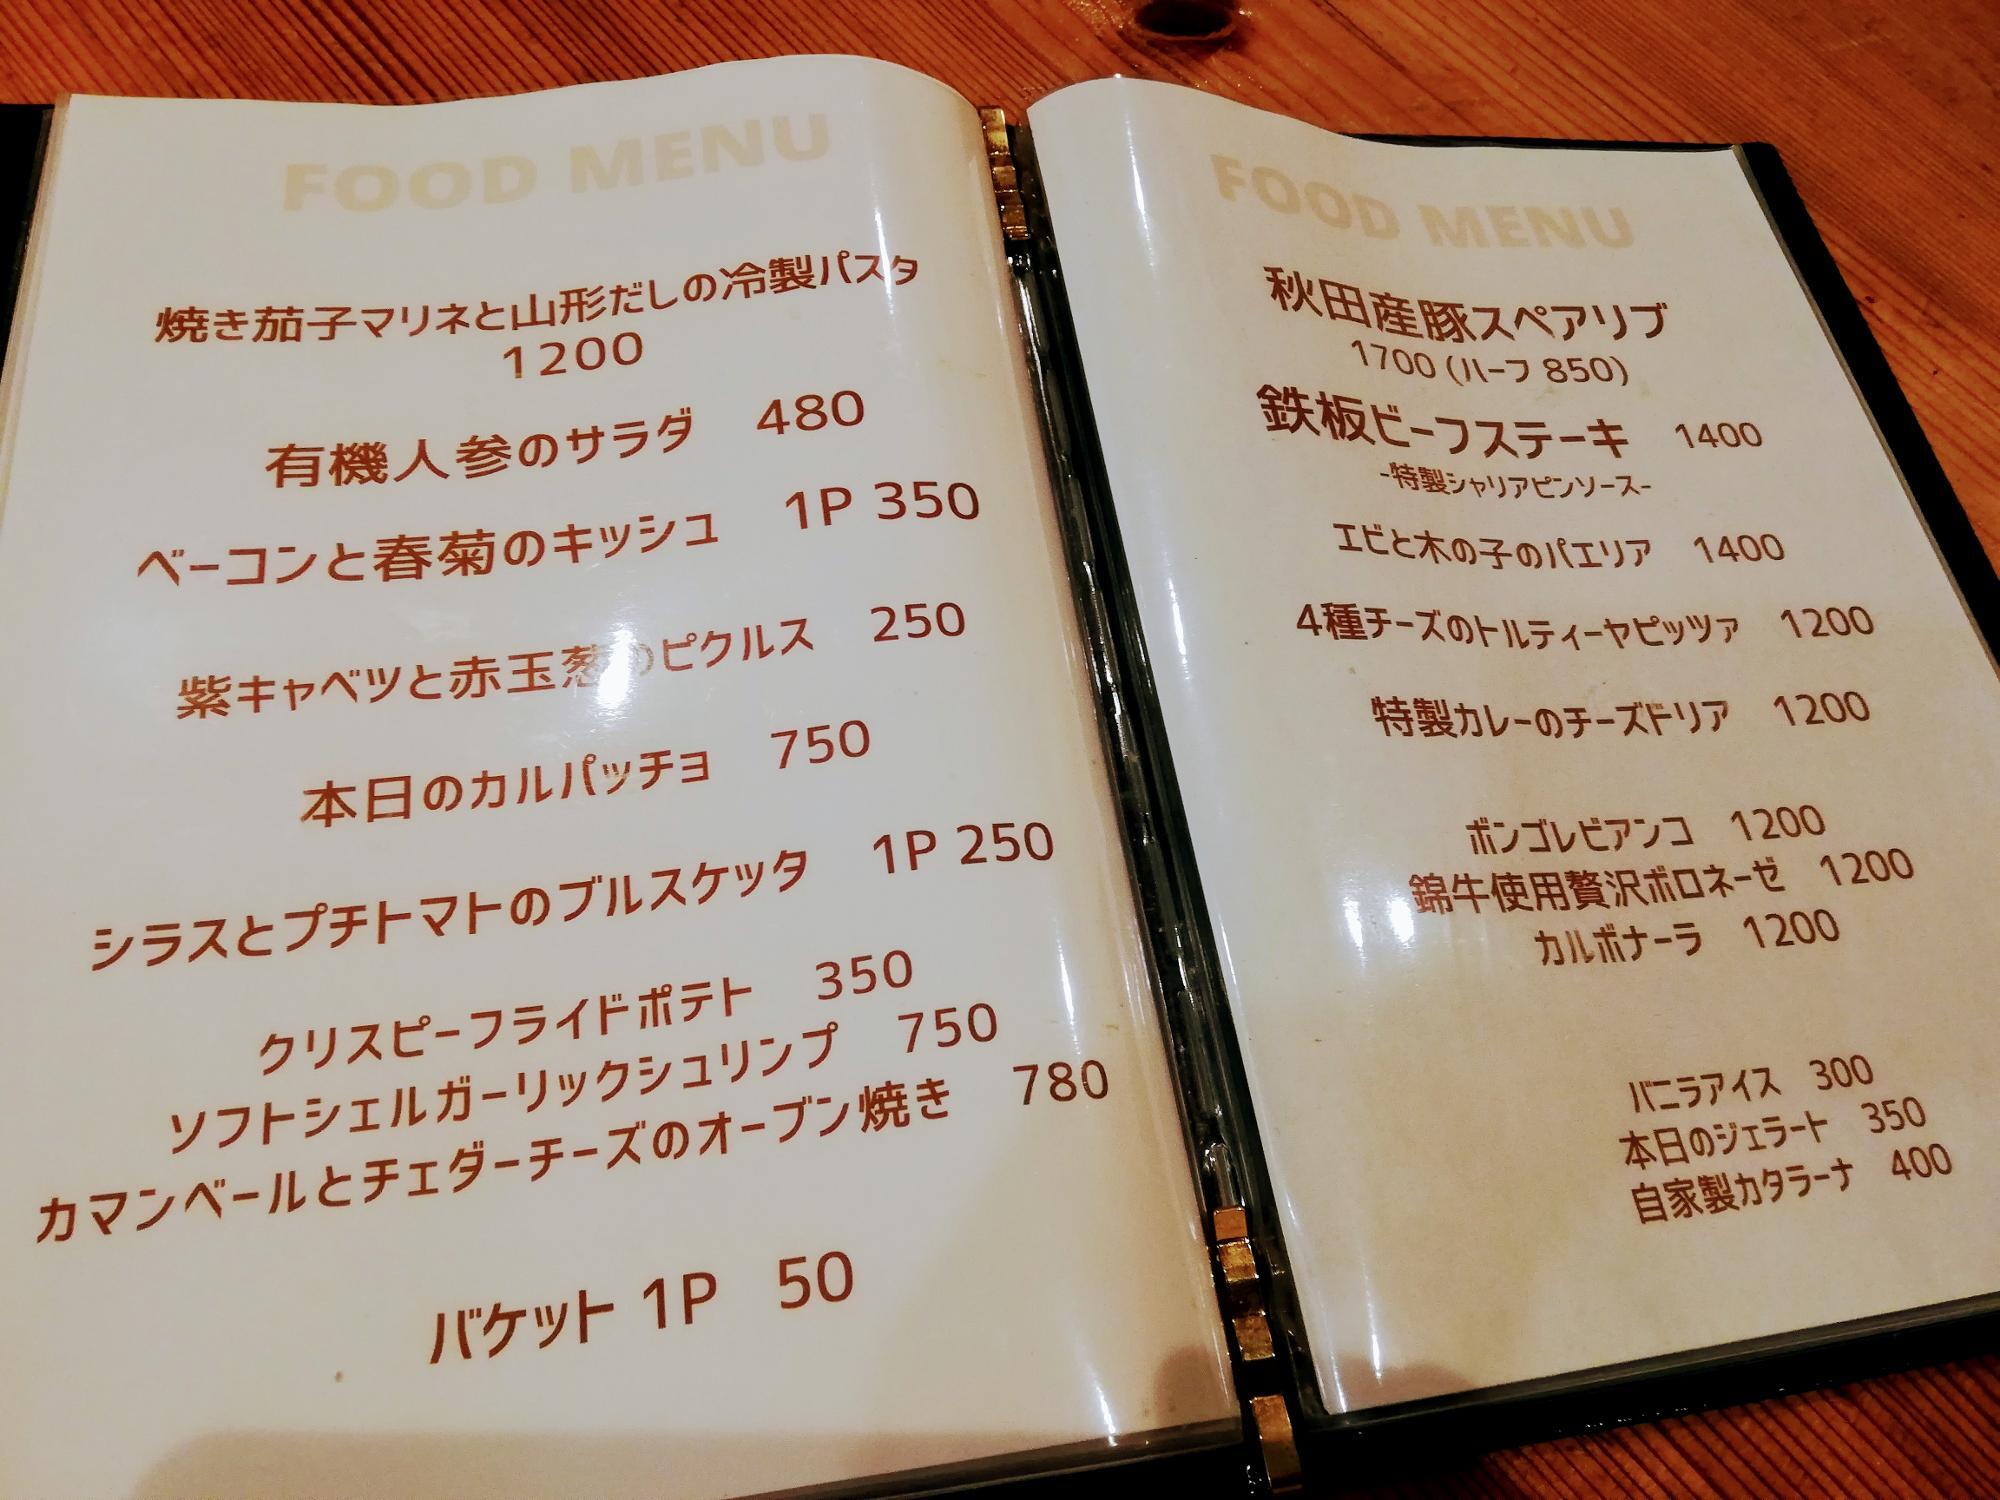 FOOD MENU
焼き茄子マリネと山形だしの冷製パスタ
1200
有機人参のサラダ 480
ベーコンと春菊のキッシュ 1P 350
紫キャベツと赤玉葱のピクルス 250
本日のカルパッチョ 750
シラスとプチトマトのブルスケッタ 1P 250
クリスピーフライドポテト 350
ソフトシェルガーリックシュリンプ 750
カマンベールとチェダーチーズのオーブン焼き 780
バケット 1P 50
FOOD MENU
秋田産豚スペアリブ
1700 (ハーフ 850)
鉄板ビーフステーキ 1400
-特製シャリアピンソース-
エビと木の子のパエリア 1400
4種チーズのトルティーヤピッツァ 1200
特製カレーのチーズドリア 1200
ボンゴレビアンコ 1200
錦牛使用贅沢ボロネーゼ 1200
カルボナーラ 1200
バニラアイス 300
本日のジェラート 350
自家製カタラーナ 400